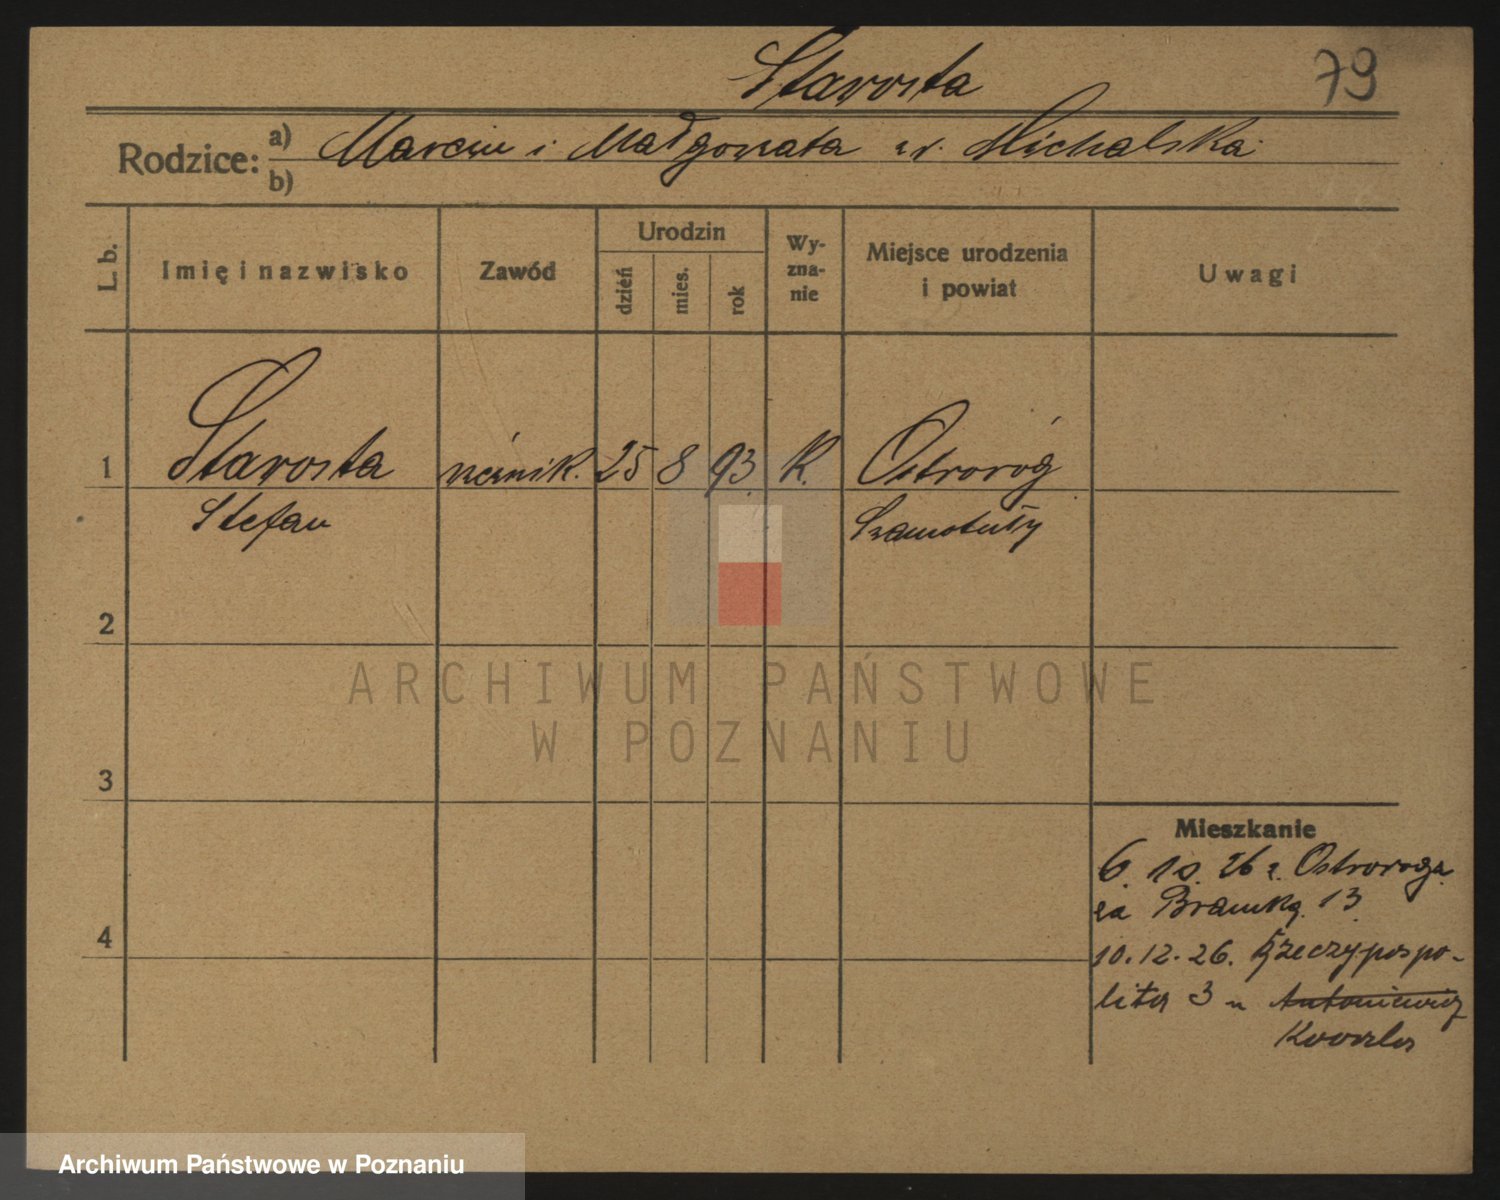 Starosta
79
Rodzice: a) Marcin i Małgorzata z d. Michalska
b)
L. b.
Imię i nazwisko
Zawód
Urodzin
dzień
mies.
rok
Wy-
zna-
nie
Miejsce urodzenia
i powiat
Uwagi
1 Starosta 25 8 93. K. Ostroróg
Stefan Szamotuły
2
3
4
ARCHIWUM PAŃSTWOWE
W POZNANIU
Mieszkanie
6. 10. 26 z. Ostroroga
za Bramką 13
10.12.26. Rzeczypospo-
litej 3 u Antoniewicz
Archiwum Państwowe w Poznaniu